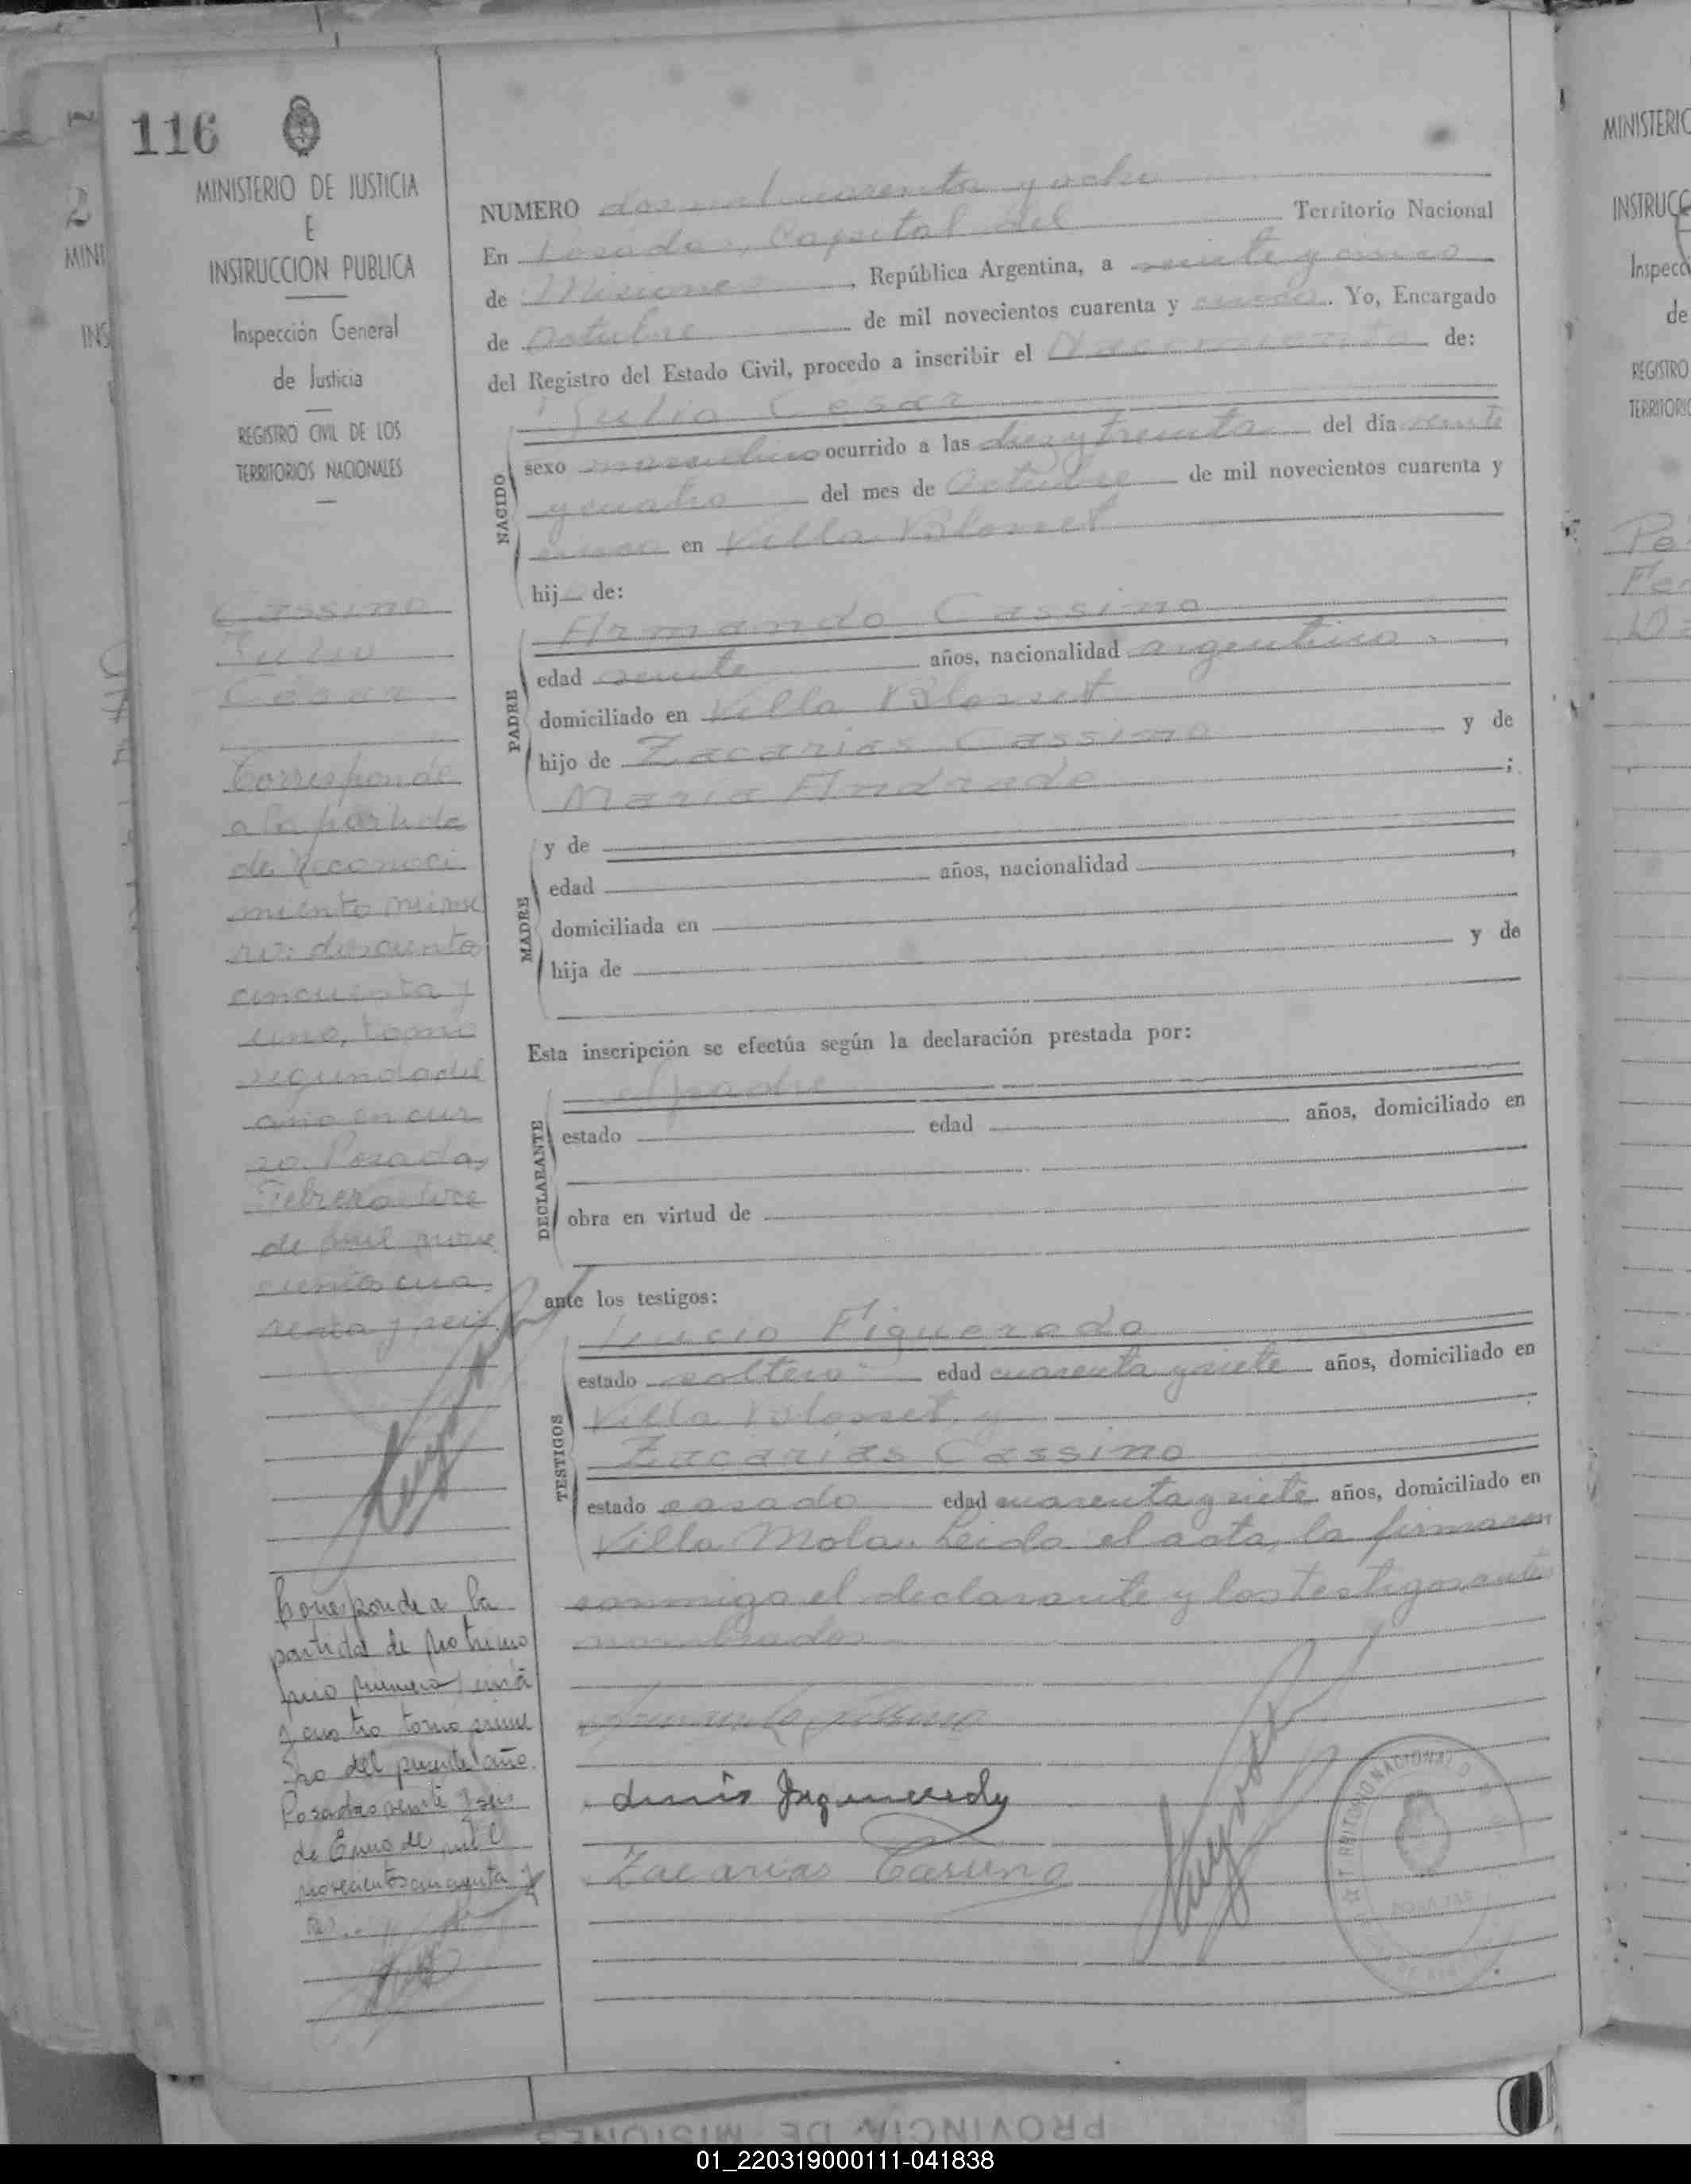 116
MINISTERIO DE JUSTICIA
E
INSTRUCCION PUBLICA
Inspección General
de Justicia
REGISTRO CIVIL DE LOS
TERRITORIOS NACIONALES
Cassino
Julio
Cesar
Corresponde
a la partida
de reconoci
miento núme
ro: doscientos
cincuenta y
uno, tomo
segundo del
año en cur
so. Posadas,
Febrero
de mil nove
cientos cua
renta y seis
Corresponde a la
partida de
y cuatro tomo prime
ro del presente año.
Posadas veinte y seis
de Enero de mil
novecientos
NUMERO dos mil cuarenta y ocho
En Posadas, Capital del Territorio Nacional
de Misiones, República Argentina, a veinte y cinco
de Octubre de mil novecientos cuarenta y cinco. Yo, Encargado
del Registro del Estado Civil, procedo a inscribir el Nacimiento de:
NACIDO
Julio Cesar
sexo masculino ocurrido a las diez y treinta del día veinte
y cuatro del mes de Octubre de mil novecientos cuarenta y
cinco en Villa Blosset
hij de:
PADRE
Armando Cassino
edad veinte años, nacionalidad argentino,
domiciliado en Villa Blosset
hijo de Zacarias Cassino y de
Maria Andrade;
MADRE
y de
edad años, nacionalidad ,
domiciliada en
hija de y de
Esta inscripción se efectúa según la declaración prestada por:
DECLARANTE
el padre
estado edad años, domiciliado en
obra en virtud de
ante los testigos:
TESTIGOS
Figueredo
estado soltero edad cuarenta y siete años, domiciliado en
Villa Blosset, y
Zacarias Cassino
estado casado edad cuarenta y siete años, domiciliado en
Villa Mola. Leida el acta, la firmaron
conmigo el declarante y los testigos antes
nombrados
Zacarias Casino
TERRITORIO NACIONAL D
PROVINCIA DE MISIONES
MINISTERIO
INSTRUCC
Inspecc
de
REGISTRO
TERRITORIO
01_220319000111-041838